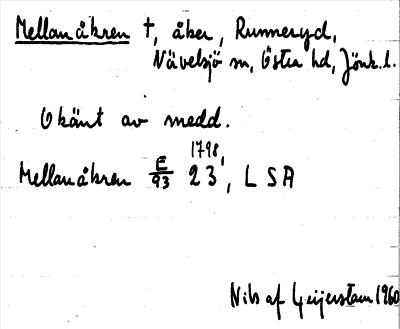 Mellanåkren †, åker, Runneryd,
Nävelsjö sn, Östra hd, Jönk. l.
Okänt av medd.
1798,
Mellanåkren E/93 23, L S A
Nils af Geijerstam 1960